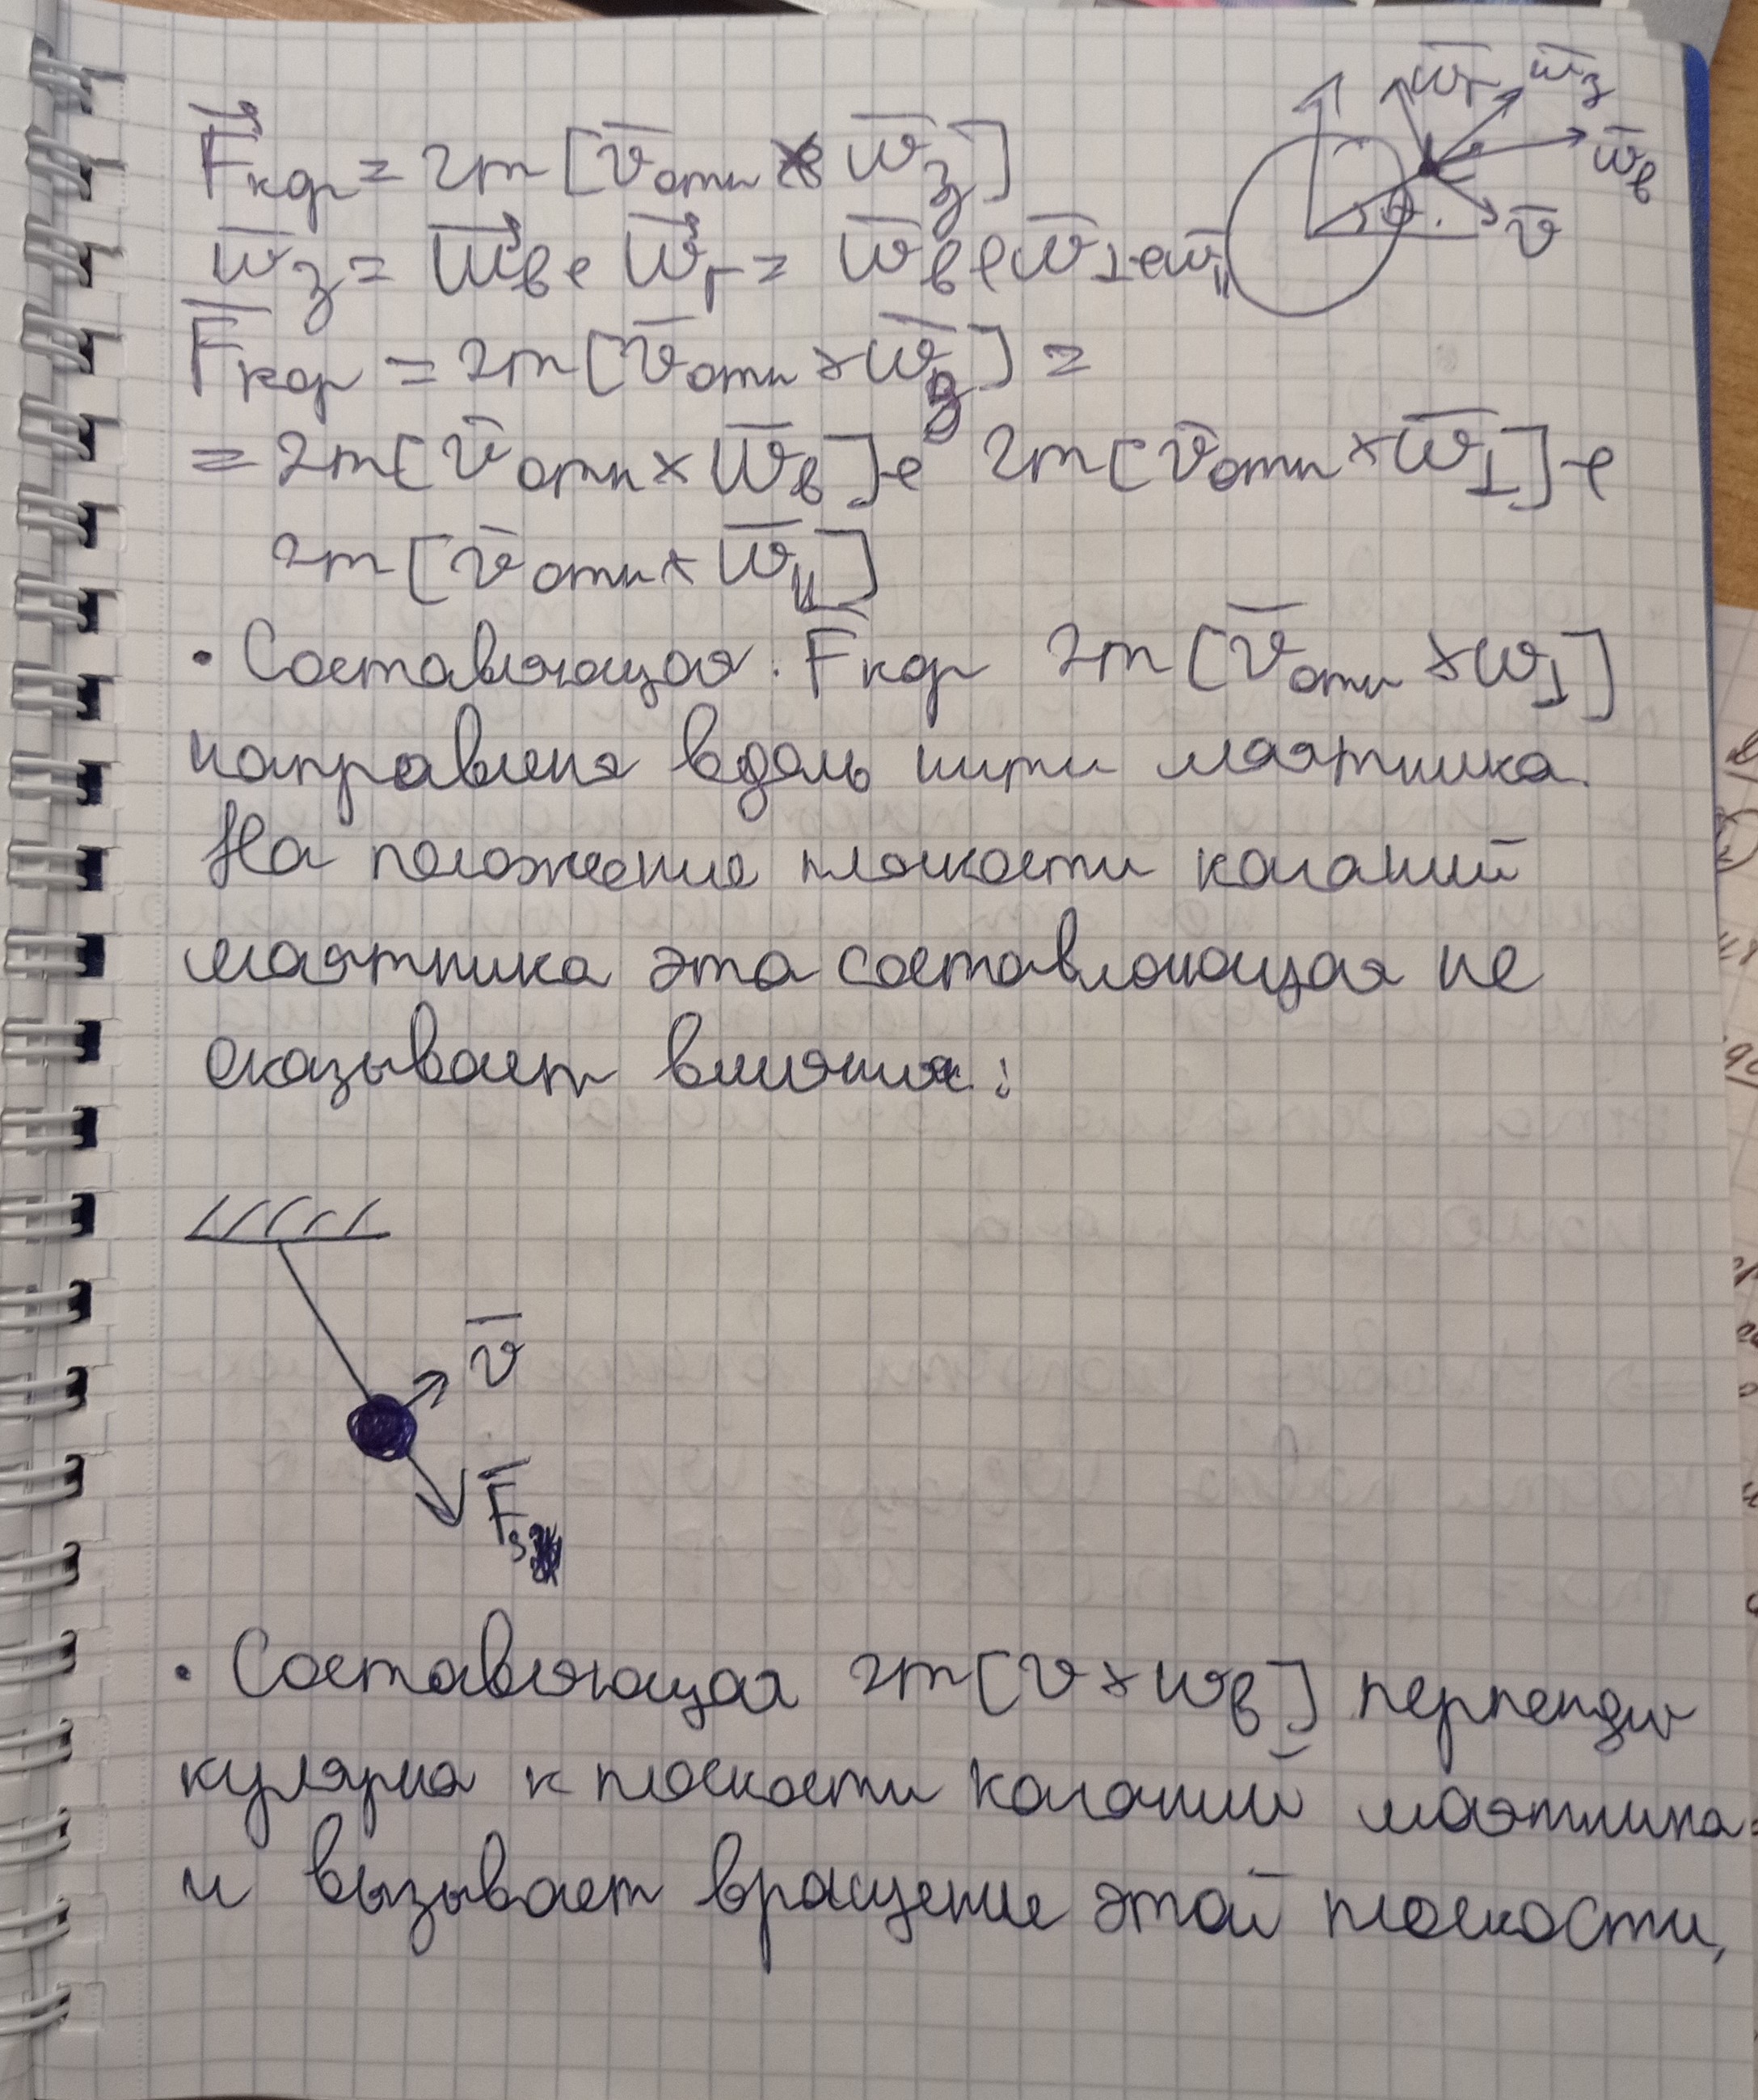 F⃗кор = 2m [v̅отн × w̅з]
w̅з = w⃗в + w⃗г = w̅в + w̅⊥ + w̅||
F̅кор = 2m [v̅отн × w̅з] =
= 2m [v̅отн × w̅в] + 2m [v̅отн × w̅⊥] +
2m [v̅отн × w̅||]
w̅г w̅з
w̅в
φ
v̅
• Составляющая F̅кор 2m [v̅отн × w⊥]
направлена вдоль нити маятника.
На положение плоскости коланий
маятника эта составляющая не
оказывает влияния:
v̅
F̅з
• Составляющая 2m [v × wв] перпенди
кулярна к плоскости коланий маятника
и вызывает вращение этой плоскости,